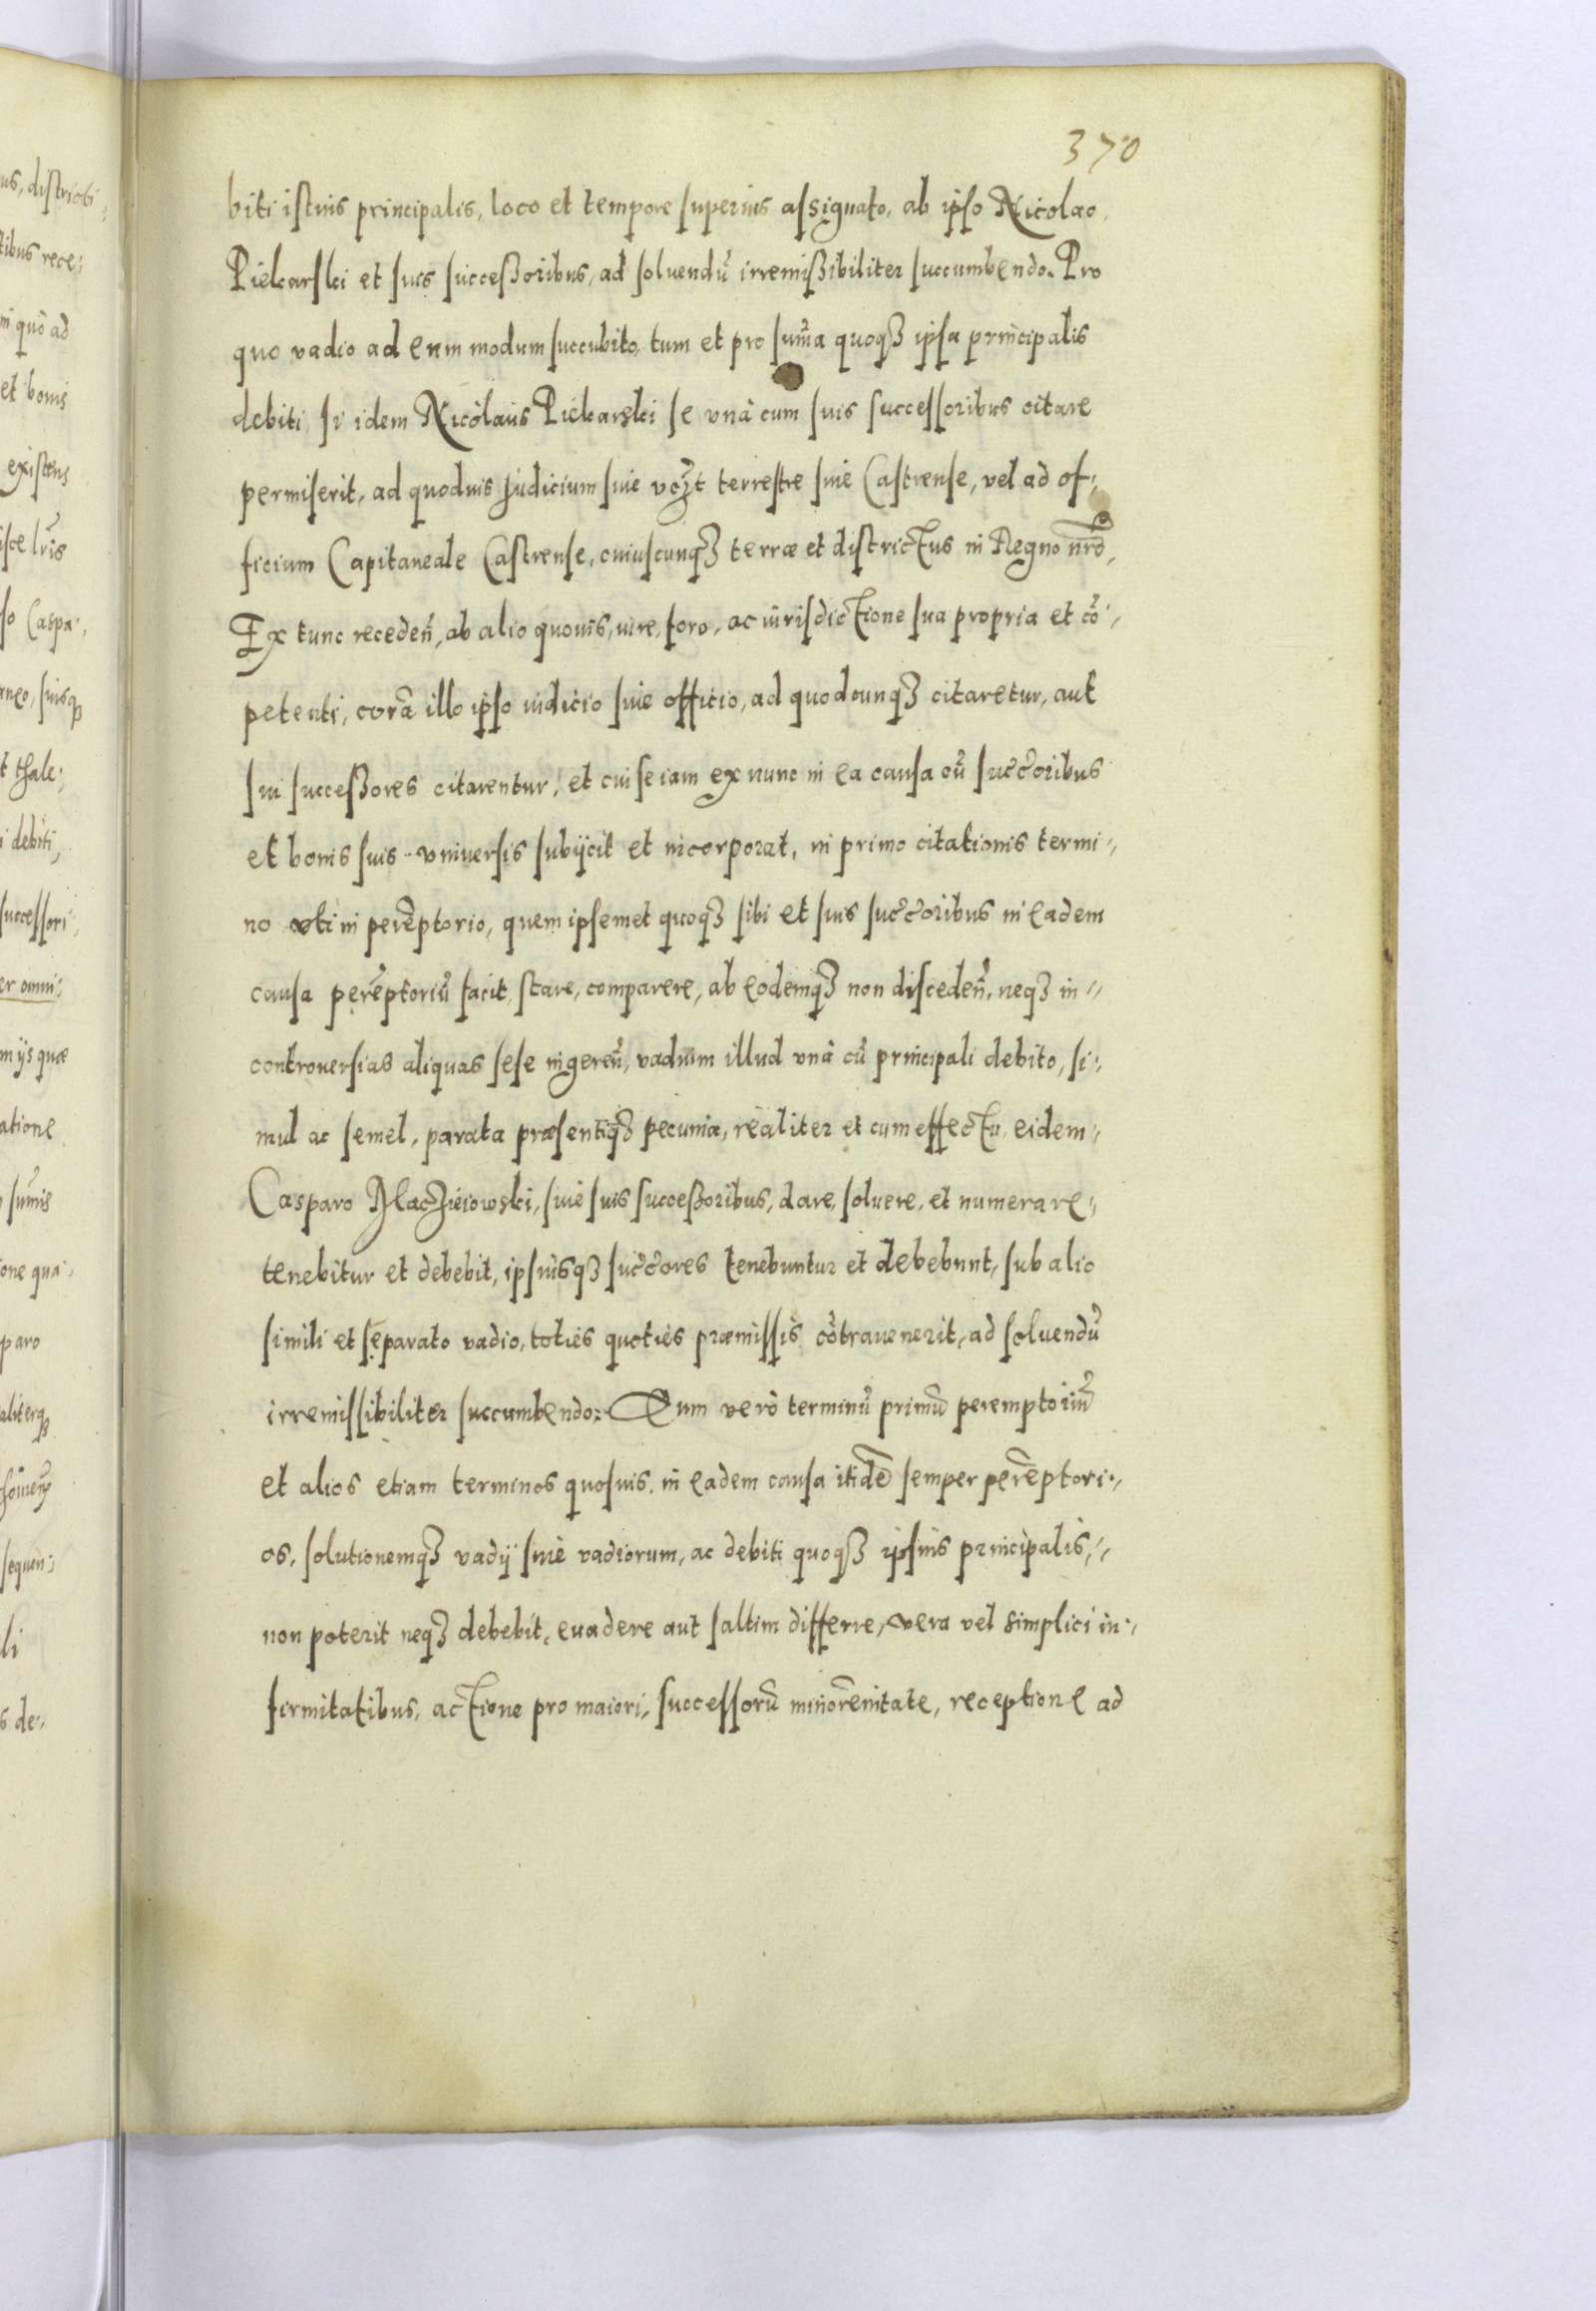 370
biti istius principalis, loco et tempore superius assignato, ab ipso Nicolao
Piekarski et suis successoribus, ad soluendũ irremissibiliter succumbendo. Pro
quo vadio ad eum modum succubito, tum et pro sum̃a quoqȝ ipsa principalis
debiti, si idem Nicolaus Piekarski se vnà cum suis successoribus citare
permiserit, ad quoduis Judicium siue vczt terrestre siue Castrense, vel ad of:,
ficium Capitaneale Castrense, cuiuscunqȝ terræ et districtus in Regno nr̃o,
Ex tunc receden̄, ab alio quouis, iure, foro, ac iurisdictione sua propria et cõ:,
petenti, corã illo ipso iudicio siue officio, ad quodcunqȝ citaretur, aut
sui successores citarentur, et cui se iam ex nunc in ea causa cũ succ̃oribus
et bonis suis vniuersis subijcit et incorporat, in primo citationis termi:,
no uti in perẽptorio, quem ipsemet quoqȝ sibi et suis succ̃oribus in eadem
causa perẽptoriũ facit, stare, comparere, ab eodemqȝ non disceden̄, neqȝ in:,
controuersias aliquas sese ingeren̄, vadium illud vnà cũ principali debito, si:,
mul ac semel, parata præsentiqȝ pecunia, realiter et cum effectu, eidem:,
Casparo Maczieiowski, siue suis successoribus, dare, soluere, et numerare:,
tenebitur et debebit, ipsiusqȝ succ̃ores tenebuntur et debebunt, sub alio
simili et separato vadio, toties quoties præmissis cõtrauenerit, ad soluendũ
irremissibiliter succumbendo: Quem verò terminũ primũ peremptoriũ
et alios etiam terminos quosuis, in eadem causa itidẽ semper perẽptori:,
os, solutionemqȝ vadij siue vadiorum, ac debiti quoqȝ ipsius principalis,:,
non poterit neqȝ debebit, euadere aut saltim differre, vera vel simplici in:,
firmitatibus, actione pro maiori, successorũ minorẽnitate, receptione ad